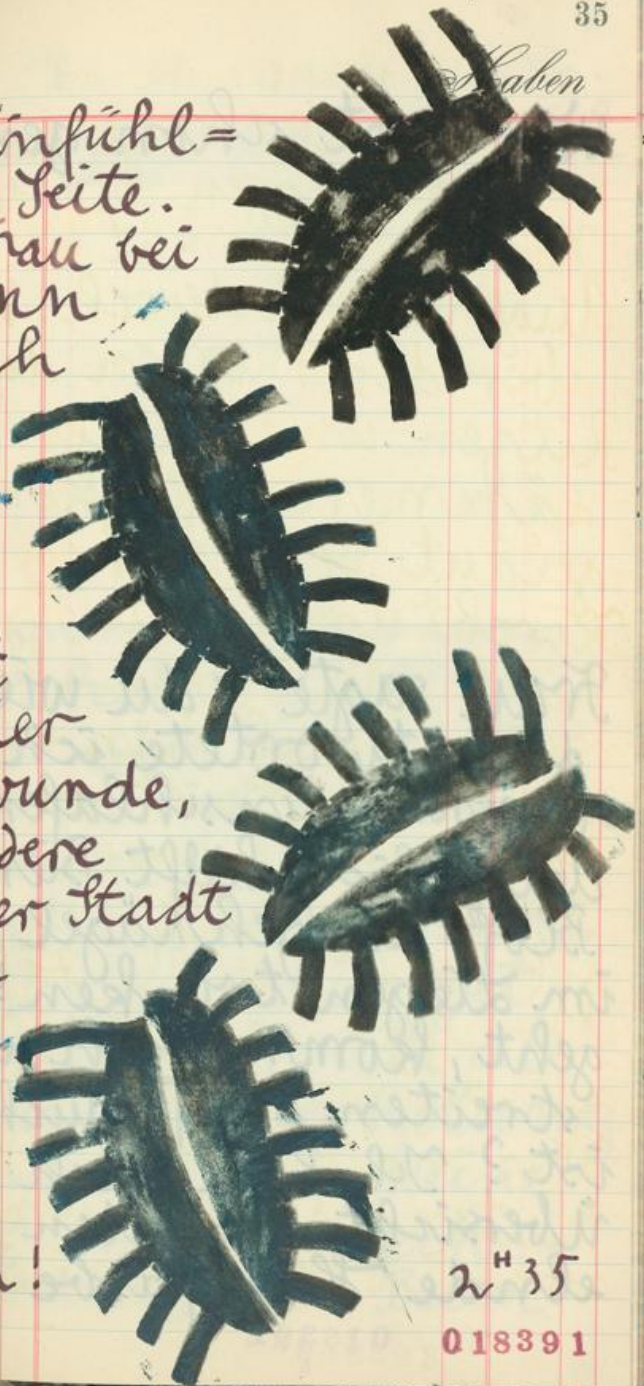 35
Haben
infühl=
Seite.
rau bei
nn
h
er
wurde,
dere
er Stadt
!
2ᴴ35
018391